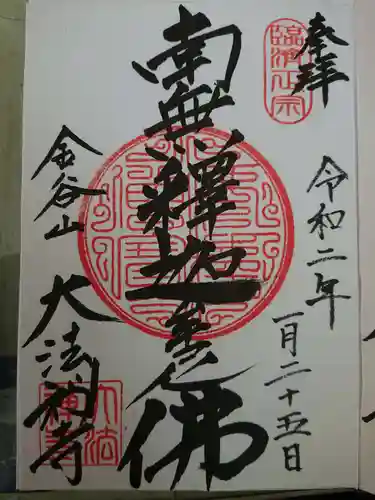 奉拝
臨済正宗
令和二年
一月二十五日
南無釋迦牟尼佛
金谷山
大法禅寺